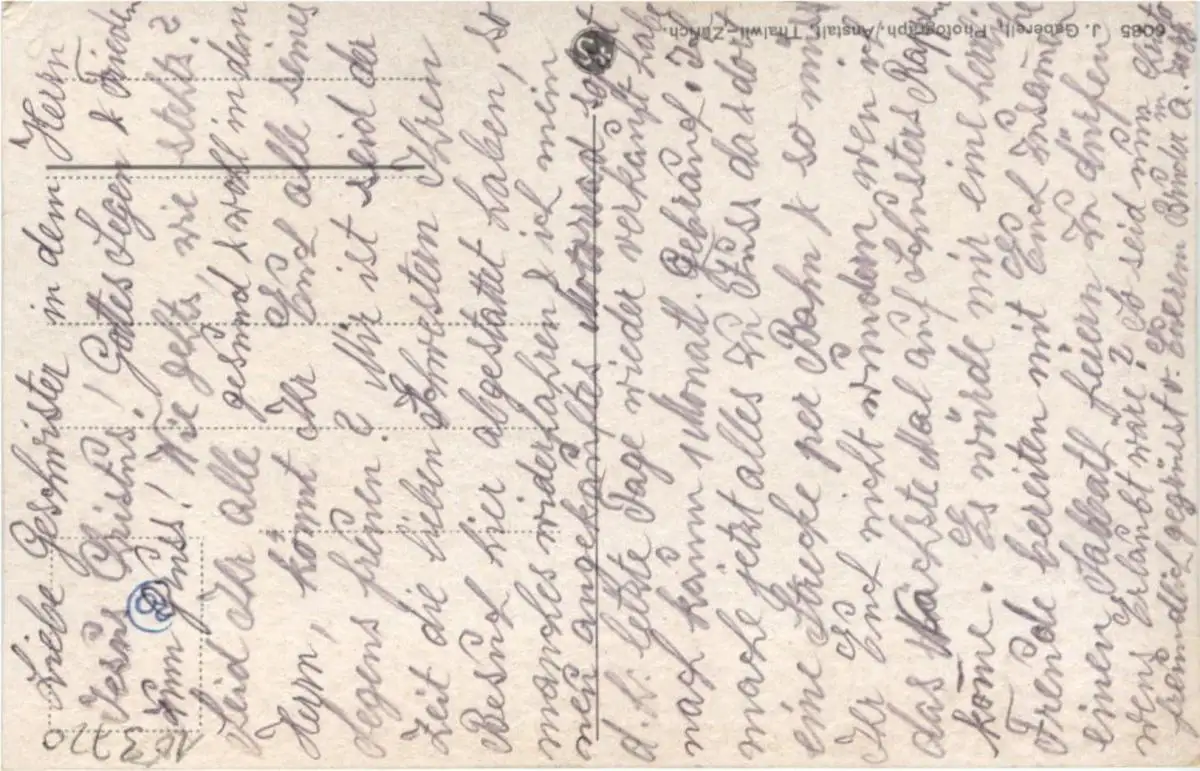 Liebe Geschwister in dem Herrn
Jesus Christus! Gottes Segen & Frieden
zum Gruss! Wie gehts wie stehts?
Seid Ihr alle gesund & woll in dem
Herrn, könnt Ihr Euch alle seines
Segens freuen? Mir ist seid der
Zeit die lieben Schwestern Ihren
Besuch hier abgestattet haben, so
manches widerfahren & ich mein
neu angekauftes Motorrad
d. b. letzte Tage wieder verkauft habe
nach kaum 1 Monatl. Gebrauch. Ich
mache jetzt alles zu Fuss da & dort
eine Strecke per Bahn & so müsst
Ihr Euch nicht wundern wen ich
das Nachste Mal auf Schusters Rappen
kome. Es würde mir eine herzl.
Freude bereiten mit Euch zusamen
einen Sabbath feiern zu dürfen
wens Erlaubt wäre? So seid nun
freundlich gegrüsst v. Euerm Bruder in
6085 J. Gaberell, Photograph/Anstalt, Thalwil-Zürich.
163770